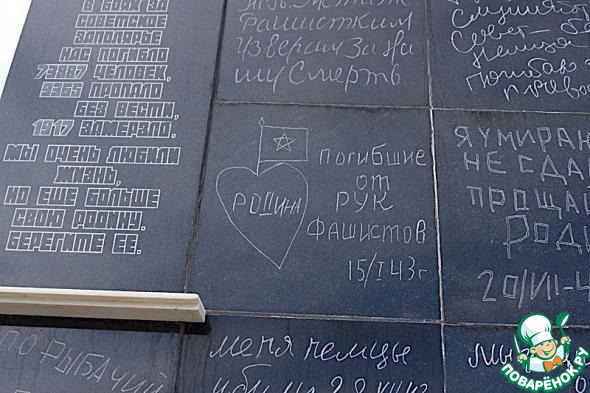 В БОЯХ ЗА
СОВЕТСКОЕ
ЗАПОЛЯРЬЕ
НАС ПОГИБЛО
73887 ЧЕЛОВЕК,
9365 ПРОПАЛО
БЕЗ ВЕСТИ,
1517 ЗАМЕРЗЛО.
МЫ ОЧЕНЬ ЛЮБИЛИ
ЖИЗНЬ,
НО ЕЩЕ БОЛЬШЕ
СВОЮ РОДИНУ.
БЕРЕГИТЕ ЕЕ.
Фашистким
Извергам За На
шу Смерть
Совет-
Погибаю
РОДИНА
ПОГИБШИЕ
ОТ
РУК
ФАШИСТОВ
15/I 43 г
Я УМИРАЮ
НЕ СДА
ПРОЩАЙ
РОДИ
20/VII-4
ПО РЫБАЧИЙ
меня немцы
мы
ПОВАРЁНОК.РУ